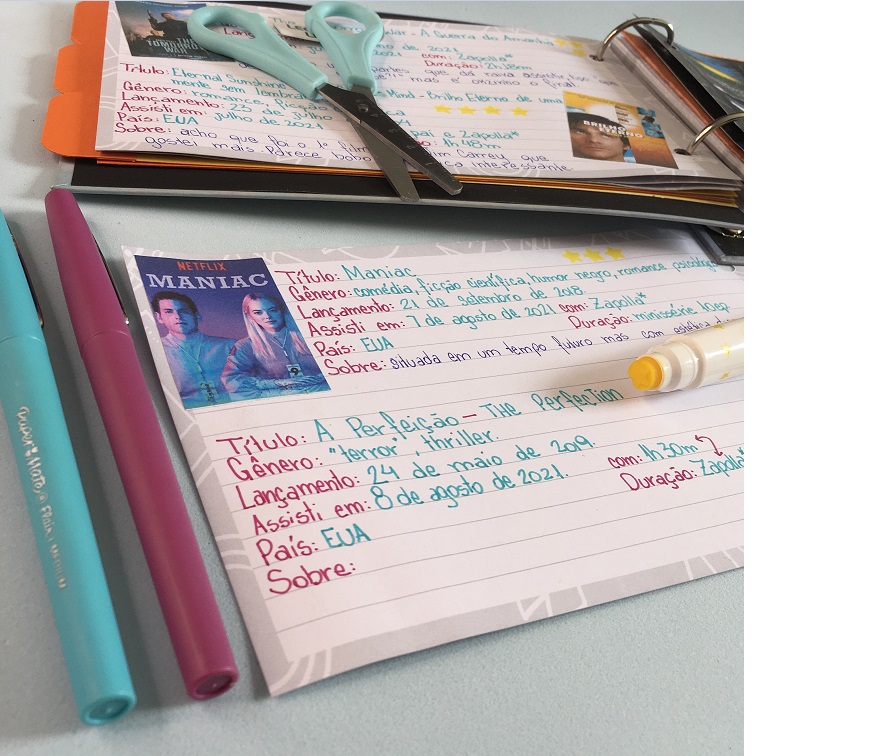 THE
TOMORROW
WAR
A Guerra do Amanhã
de 2021
2021 com: Zapolla*
Duração: 2h18m
Título: Eternal Sunshine Mind - Brilho Eterno de uma
mente sem lembra
Gênero: romance, ficção
Lançamento: 23 de julho
Assisti em: julho de 2021 pai e Zapolla*
País: EUA 1h48m
Sobre: acho que foi o 1º film Jim Carrey que
gostei mais. Parece bobo interessante
BRILHO
ETERNO
NETFLIX
MANIAC
Título: Maniac
Gênero: comédia, ficção científica, humor negro, romance psicológ
Lançamento: 21 de setembro de 2018
Assisti em: 7 de agosto de 2021 com: Zapolla*
País: EUA Duração: minissérie 10ep
Sobre: situada em um tempo futuro mas com estética
Título: A Perfeição - The Perfection
Gênero: "terror", thriller.
Lançamento: 24 de maio de 2019.
Assisti em: 8 de agosto de 2021. com: 1h30m
País: EUA Duração: Zapolla*
Sobre:
Paper Mate Flair MEDIUM